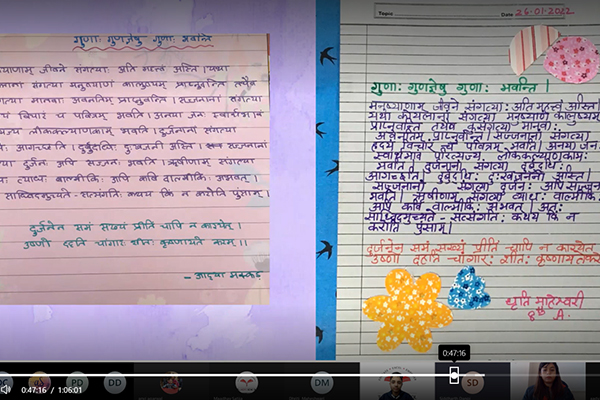 गुणाः गुणज्ञेषु गुणाः भवन्ति
जीवने संगत्याः अति महत्वं अस्ति । यथा
संगत्या मनुष्याणां कालुष्यम् प्राप्नुवन्ति तथैव
मानवाः अवनतिम् प्राप्नुवन्ति । सज्जनानां संगत्या
च पवित्रम् भवति । अनया जनः स्वार्थभावं
लोककल्याणकामः भवति । दुर्जनानां संगत्या
दुर्बुद्धिः दुःखजननी अस्ति ।
दुर्जनः अपि सज्जनः भवति । ऋषीणाम् संगत्या
व्याधः वाल्मीकिः अपि कविः वाल्मीकिः अभवत् ।
साध्विदमुच्यते सत्संगतिः कथय किं न करोति पुंसाम् ।
दुर्जनेन समं सख्यं प्रीतिं चापि न कारयेत् ।
उष्णो दहति चांगारः शीतः कृष्णायते करम् ।।
- आद्या
Topic
Date 26-01-2022
गुणाः गुणज्ञेषु गुणाः भवन्ति ।
मनुष्याणाम् जीवने संगत्याः अति महत्वं अस्ति ।
यथा कुसंगत्या मनुष्याणां कालुष्यम्
प्राप्नुवन्ति तथैव कुसंगत्या मानवाः
अवनतिम् प्राप्नुवन्ति । सज्जनानां संगत्या
हृदयं विचारं च पवित्रम् भवति । अनया जनः
स्वार्थभावं परित्यज्य लोककल्याणकामः
भवति । दुर्जनानां संगत्या दुर्बुद्धिः
आगच्छति । दुर्बुद्धिः दुःखजननी अस्ति ।
सज्जनानां संगत्या दुर्जनः अपि सज्जनः
भवति । ऋषीणाम् संगत्या व्याधः वाल्मीकिः
अपि कविः वाल्मीकिः अभवत् । अतः
साध्विदमुच्यते - सत्संगतिः कथय किं न
करोति पुंसाम् ।
दुर्जनेन समं सख्यं प्रीतिं चापि न कारयेत
उष्णो दहति चांगारः शीतः कृष्णायते करम्
धृति
8 A.
0:47:16
PD
DD
DM
SD
0:47:16 / 1:06:01